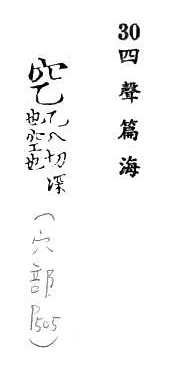 30四聲篇海
穵乙八切深
也空也
(穴部P505)